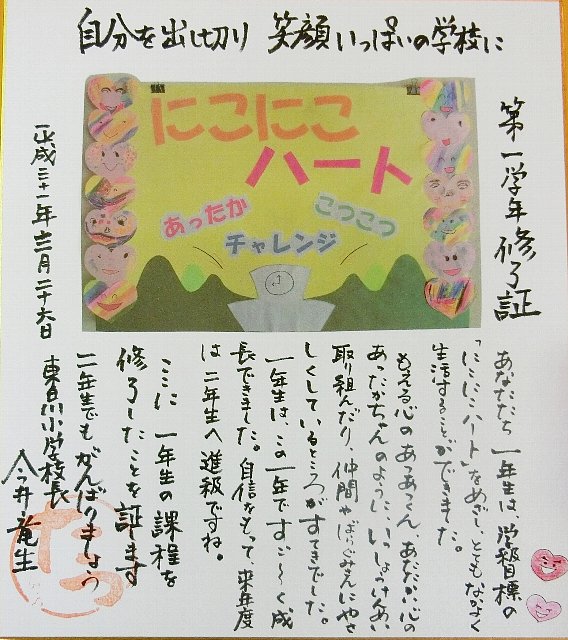 自分を出し切り 笑顔いっぱいの学校に
にこにこ
ハート
あったか
こつこつ
チャレンジ
第一学年 修了証
あなたたち一年生は、学級目標の
「にこにこハート」をめざし、ともになかよく
生活することができました。
もえる心のあつあつくん、あたたか心の
あったかちゃんのように、いっしょうけんめい
取り組んだり、仲間や
しくしているところがすてきでした。
一年生は、この一年ですご〜く成
長できました。自信をもって、来年度
は二年生へ進級ですね。
ここに一年生の課程を
修了したことを証します
二年生でもがんばりましょう
平成三十一年三月二十六日
東白川小学校長
今井竜生